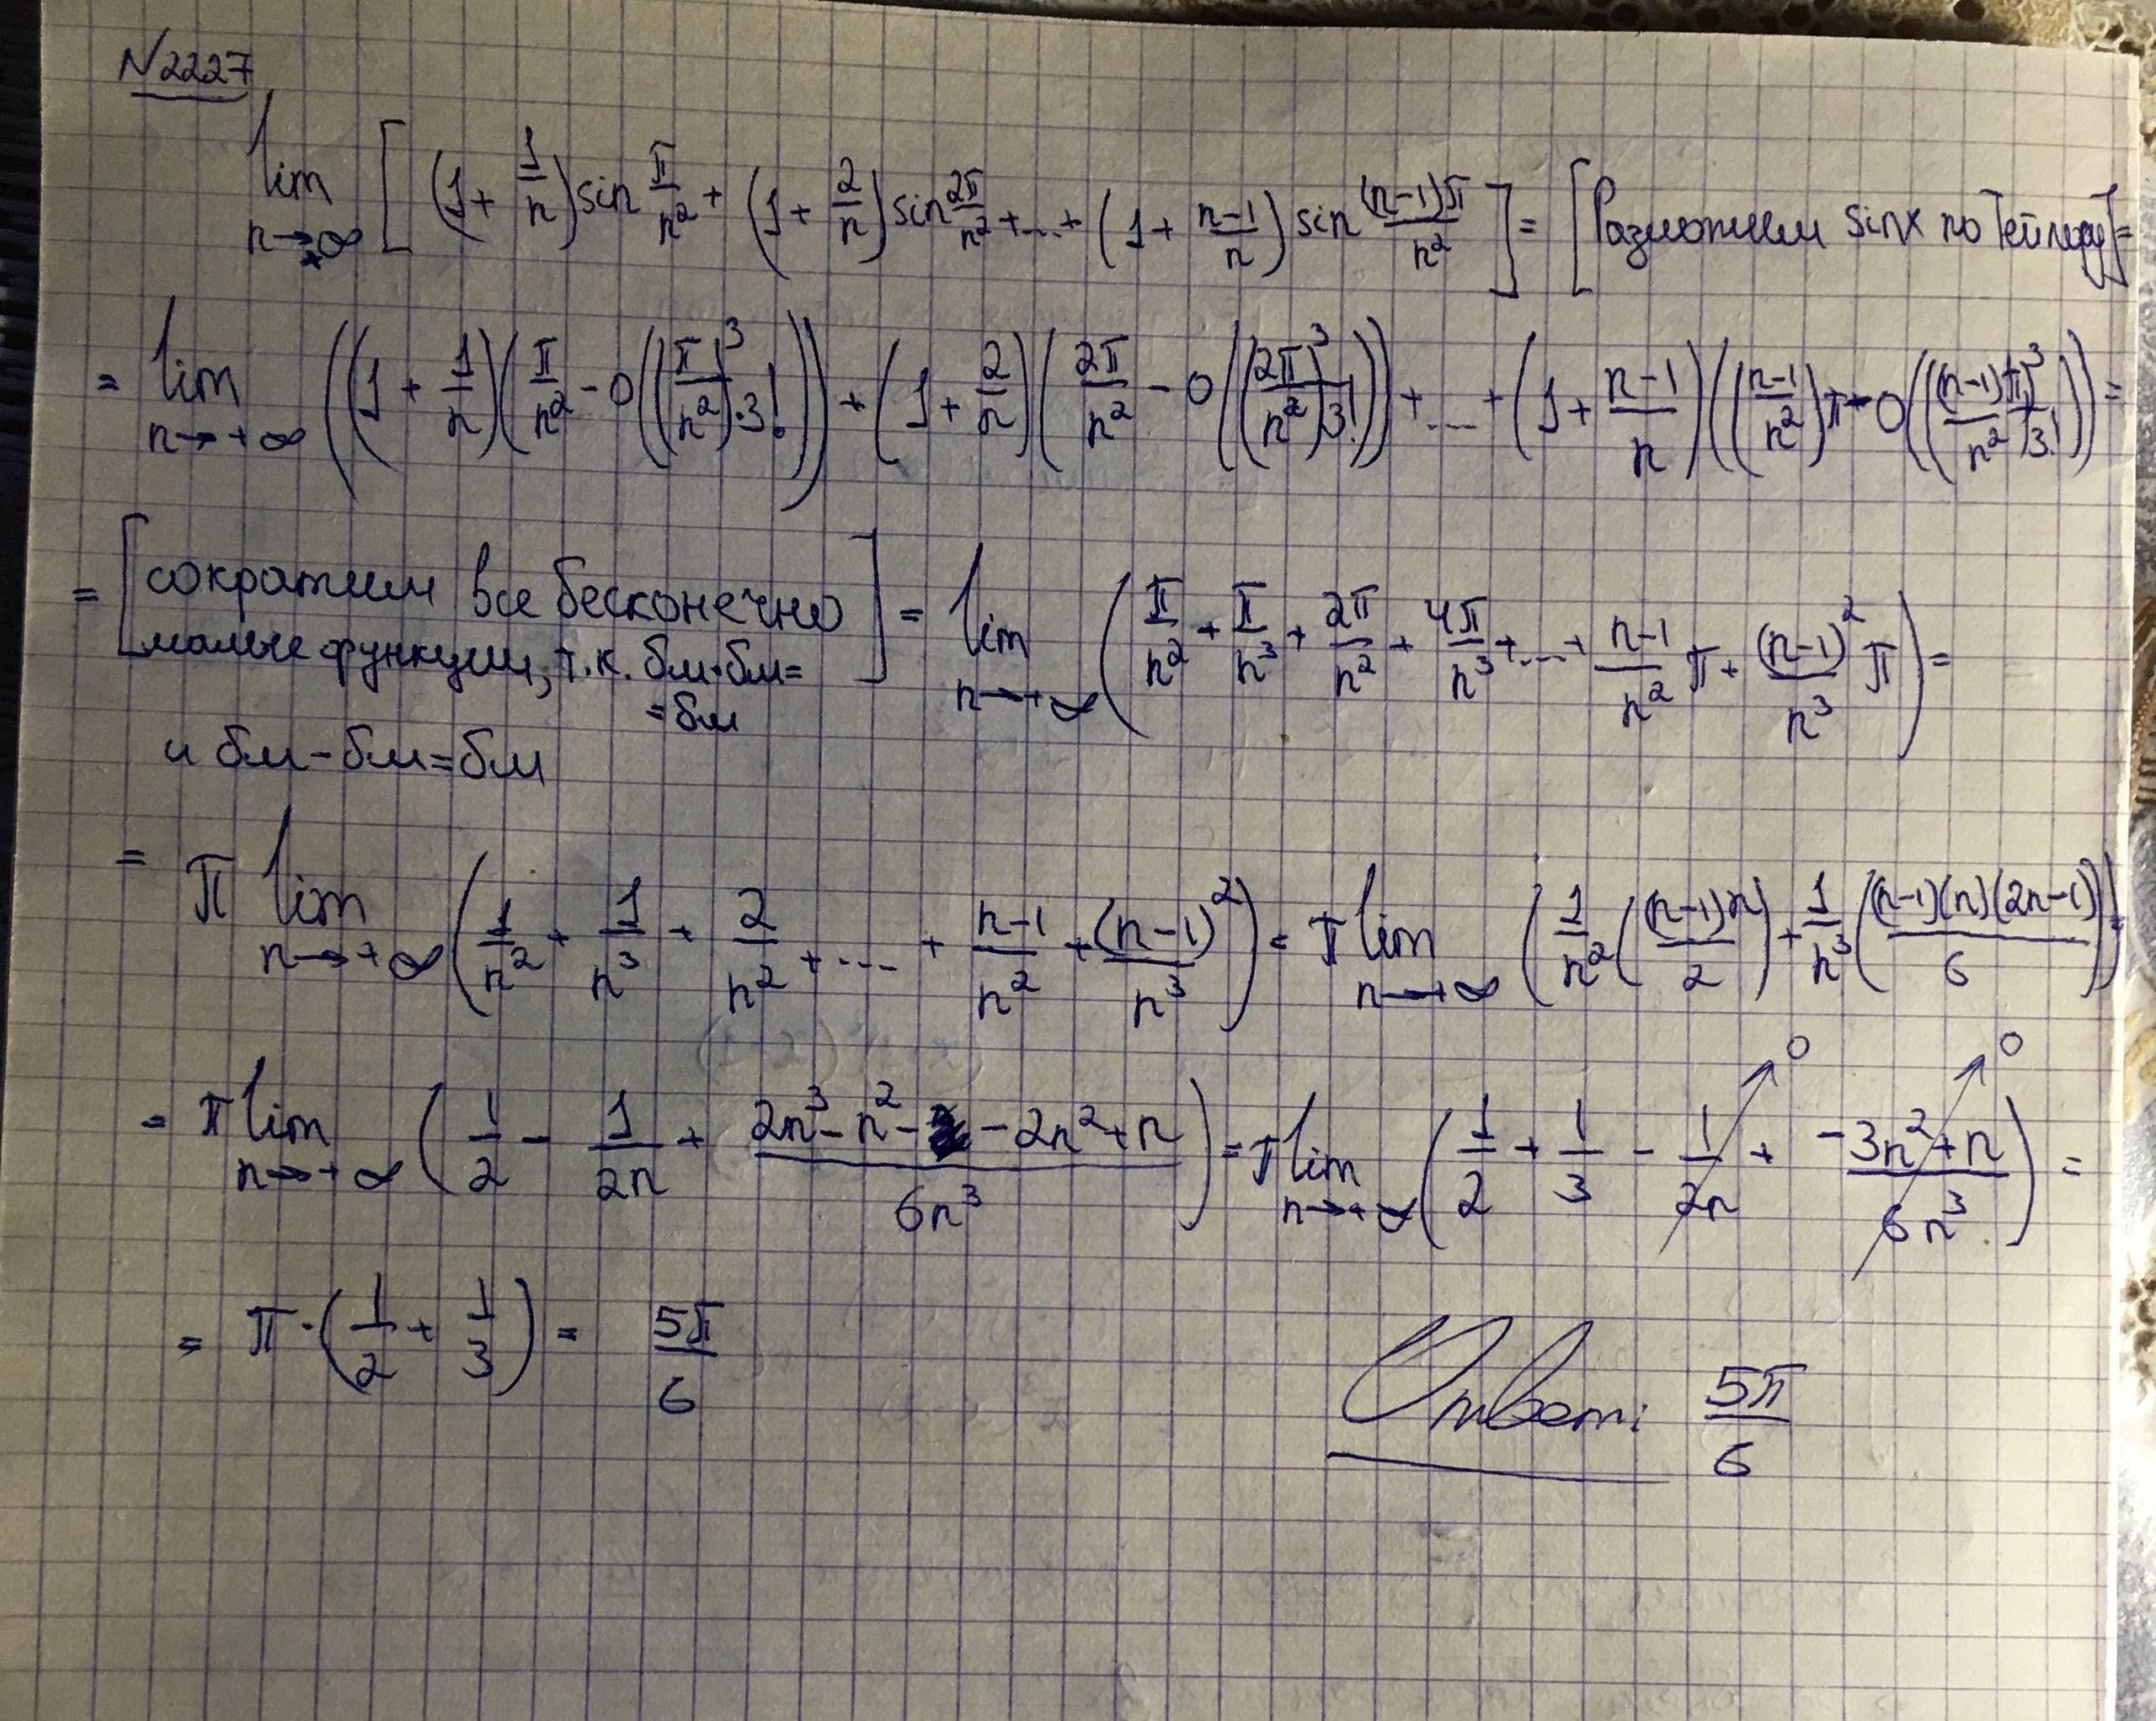 N2227
lim n→+∞ [(1 + 1/n) sin π/n² + (1 + 2/n) sin 2π/n² + ... + (1 + (n-1)/n) sin (n-1)π/n²] = [Разложим sin x по Тейлору] =
= lim n→+∞ ((1 + 1/n)(π/n² - O((π/n²)³·3!)) + (1 + 2/n)(2π/n² - O((2π/n²)³ 3!)) + ... + (1 + (n-1)/n)(((n-1)/n²)π - O(((n-1)π/n²)³ 3!)) =
= [сократим все бесконечно малые функции, т.к. бм·бм= =бм и бм-бм=бм] = lim n→+∞ (π/n² + π/n³ + 2π/n² + 4π/n³ + ... + (n-1)/n² π + (n-1)²/n³ π) =
= π lim n→+∞ (1/n² + 1/n³ + 2/n² + ... + (n-1)/n² + (n-1)²/n³) = π lim n→+∞ (1/n² ((n-1)n/2) + 1/n³ ((n-1)(n)(2n-1)/6)) =
= π lim n→+∞ (1/2 - 1/2n + (2n³ - n² - - 2n² + n)/6n³) = π lim n→+∞ (1/2 + 1/3 - 1/2n → 0 + (-3n² + n)/6n³ → 0) =
= π·(1/2 + 1/3) = 5π/6
Ответ: 5π/6